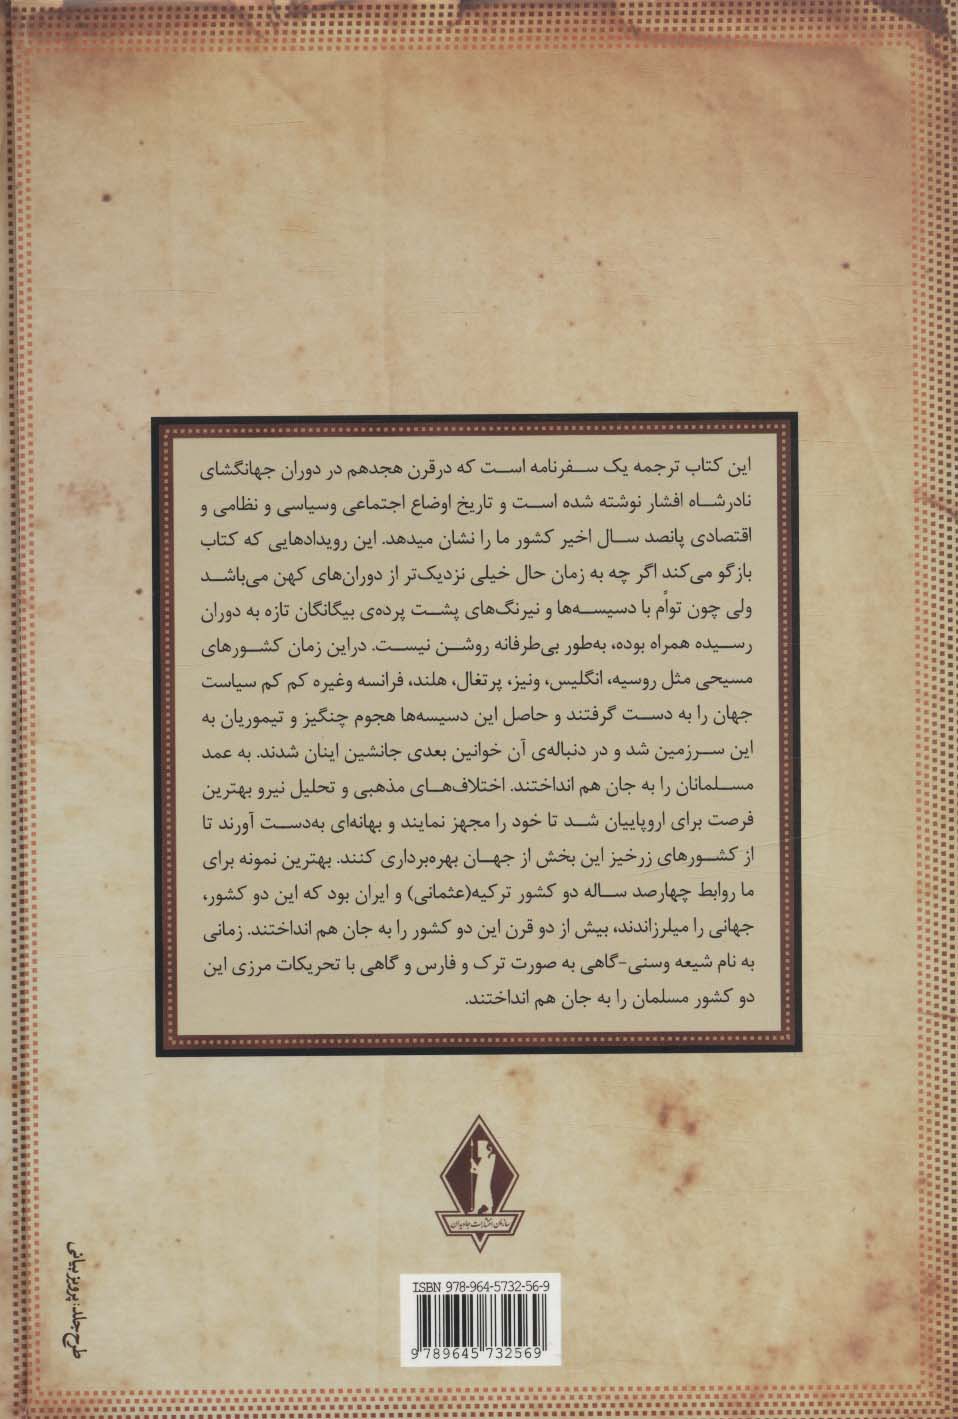 این کتاب ترجمه یک سفرنامه است که درقرن هجدهم در دوران جهانگشای
نادرشاه افشار نوشته شده است و تاریخ اوضاع اجتماعی وسیاسی و نظامی و
اقتصادی پانصد سال اخیر کشور ما را نشان میدهد. این رویدادهایی که کتاب
بازگو می‌کند اگر چه به زمان حال خیلی نزدیک‌تر از دوران‌های کهن می‌باشد
ولی چون توأم با دسیسه‌ها و نیرنگ‌های پشت پرده‌ی بیگانگان تازه به دوران
رسیده همراه بوده، به‌طور بی‌طرفانه روشن نیست. دراین زمان کشورهای
مسیحی مثل روسیه، انگلیس، ونیز، پرتغال، هلند، فرانسه وغیره کم کم سیاست
جهان را به دست گرفتند و حاصل این دسیسه‌ها هجوم چنگیز و تیموریان به
این سرزمین شد و در دنباله‌ی آن خوانین بعدی جانشین اینان شدند. به عمد
مسلمانان را به جان هم انداختند. اختلاف‌های مذهبی و تحلیل نیرو بهترین
فرصت برای اروپاییان شد تا خود را مجهز نمایند و بهانه‌ای به‌دست آورند تا
از کشورهای زرخیز این بخش از جهان بهره‌برداری کنند. بهترین نمونه برای
ما روابط چهارصد ساله دو کشور ترکیه(عثمانی) و ایران بود که این دو کشور،
جهانی را میلرزاندند، بیش از دو قرن این دو کشور را به جان هم انداختند. زمانی
به نام شیعه وسنی-گاهی به صورت ترک و فارس و گاهی با تحریکات مرزی این
دو کشور مسلمان را به جان هم انداختند.
سازمان انتشارات جاویدان
طرح جلد: پرویز بیانی
ISBN 978-964-5732-56-9
9 789645 732569